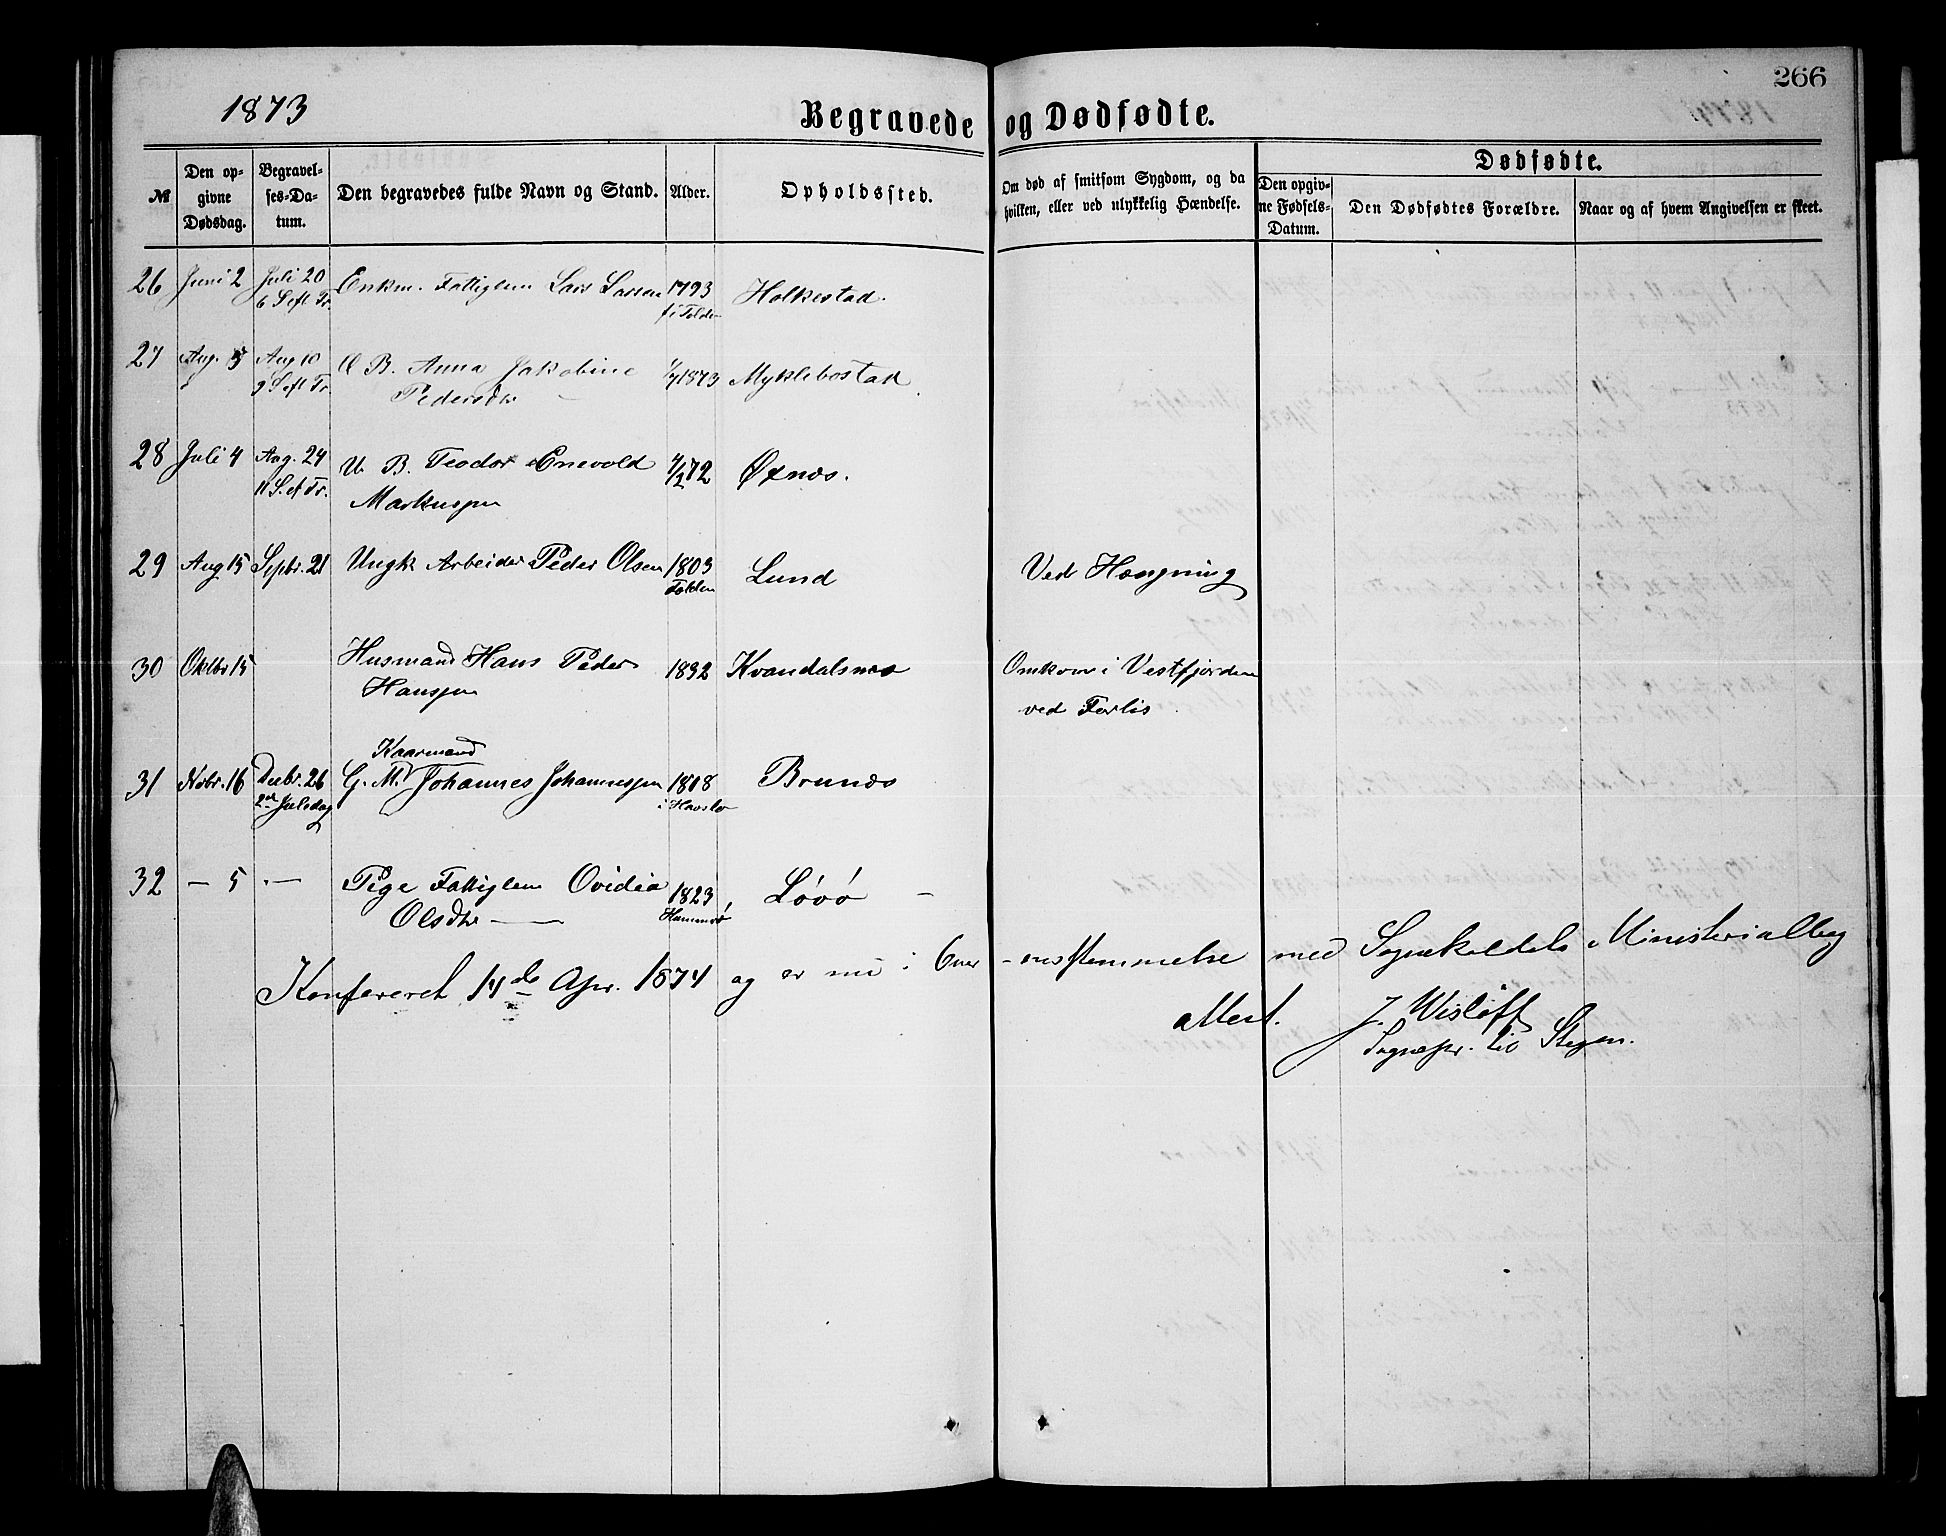 266
1873
Begravede og Dødfødte.
Dødfødte.
№
Den op-
givne
Dødsdag.
Begravel-
ses-Da-
tum.
Den begravedes fulde Navn og Stand.
Alder.
Opholdssted.
Om død af smitsom Sygdom, og da
hvilken, eller ved ulykkelig Hændelse.
Den opgiv-
ne Fødsels-
Datum.
Den Dødfødtes Forældre.
Naar og af hvem Angivelsen er skeet.
26 Juni 2 Juli 20 Enkm. Fattiglem Lars Larsen 1793 Holkestad.
6 S. eft Tr. f i Folden
27 Aug. 5 Aug 10 U B. Anna Jakobine 1/7 1873 Myklebostad
9 S eft Tr. Pedersdtr
28 Juli 4 Aug. 24 U. B. Teodor Enevold 4/2 72 Øxnes.
11 S. ef Tr. Markussen
29 Aug 15 Sepbr. 21 Ungk Arbeider Peder Olsen 1803 Lund Ved Hængning
Folden
30 Oktbr 15 Husmand Hans Peder 1832 Kvandalsnes Omkom i Vestfjorden
Hanssen ved Forlis
Kaarmand
31 Novbr. 16 Decbr. 26 G. M. Johannes Johannessen 1808 Brunes
2den Juledag i Havsler
32 — 5 — Pige Fattiglem Ovidia 1823, Løvø —
Olsdtr — Hammerø
Konfereret 14de Apr. 1874 og er nu i Over-ensstemmelse med Sognekaldets Ministerialbog
attest.
J. Wisløff
Sognepr. til Stegen.